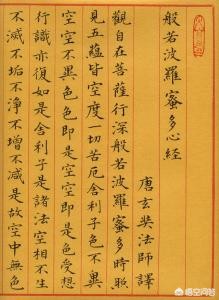 般若波羅蜜多心經
唐玄奘法師譯
觀自在菩薩行深般若波羅蜜多時照
見五蘊皆空度一切苦厄舍利子色不異
空空不異色色即是空空即是色受想
行識亦復如是舍利子是諸法空相不生
不滅不垢不淨不增不減是故空中無色
悟空问答